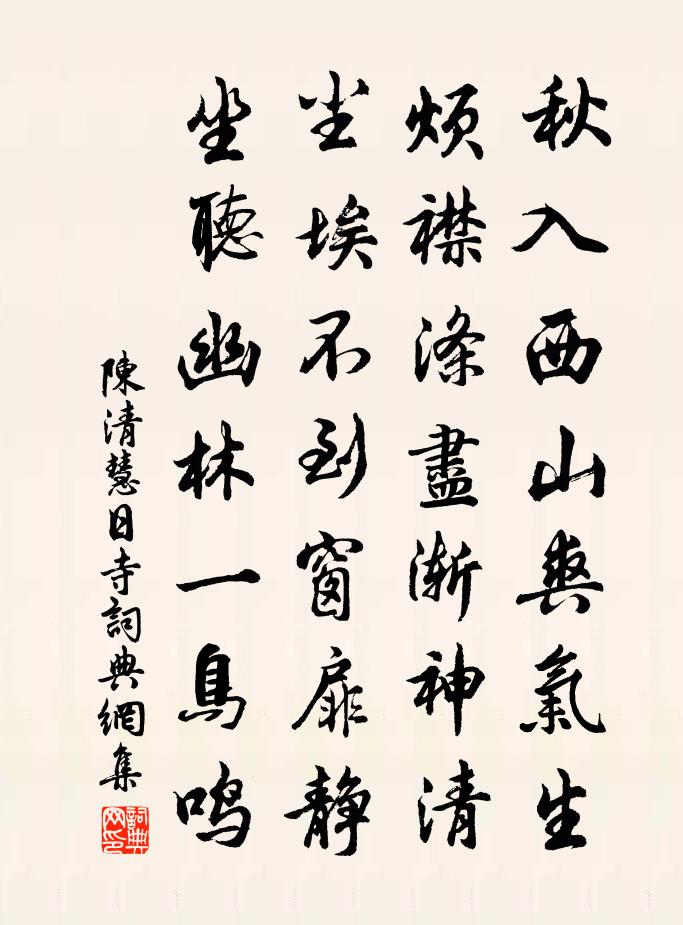 秋入西山爽氣生
煩襟滌盡漸神清
尘埃不到窗扉静
坐聽幽林一鳥鸣
陳清慧日寺詞典網集
詞典网印